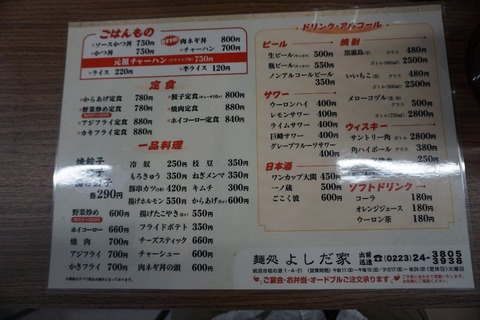 ごはんもの
ソースかつ丼 750円
かつ丼 750円
肉ネギ丼 800円
チャーハン 700円
元祖チャーハン 750円
ライス 220円
半ライス 120円
定食
からあげ定食 780円
野菜炒め定食 780円
アジフライ定食 780円
カキフライ定食 840円
餃子定食 840円
焼肉定食 800円
ホイコーロー定食 840円
一品料理
焼餃子
各290円
野菜炒め 600円
ホイコーロー 660円
焼肉 600円
アジフライ 600円
かきフライ 600円
冷奴 250円
もろきゅう 350円
豚串カツ(3本) 420円
揚げホルモン 550円
揚げたこやき 550円
フライドポテト 350円
チーズスティック 660円
チャーシュー 660円
肉ネギ丼の頭 660円
枝豆 350円
ねぎメンマ 350円
キムチ 300円
からあげ 600円
ドリンク・アルコール
ビール
生ビール 500円
瓶ビール 550円
ノンアルコールビール 350円
サワー
ウーロンハイ 400円
レモンサワー 400円
ライムサワー 400円
巨峰サワー 400円
グレープフルーツサワー 400円
日本酒
ワンカップ大関 450円
一ノ蔵 500円
ごこく波 600円
焼酎
黒霧島 グラス 480円
ボトル 2500円
いいちこ グラス 480円
メローコヅル グラス 480円
ウィスキー
サントリー角 ボトル 2800円
角ハイボール グラス 380円
ソフトドリンク
コーラ 180円
オレンジジュース 180円
ウーロン茶 180円
麺処 よしだ家
出前迅速 ☎(0223)24-3805
3938
ご宴会・お弁当・オードブルご注文承ります。